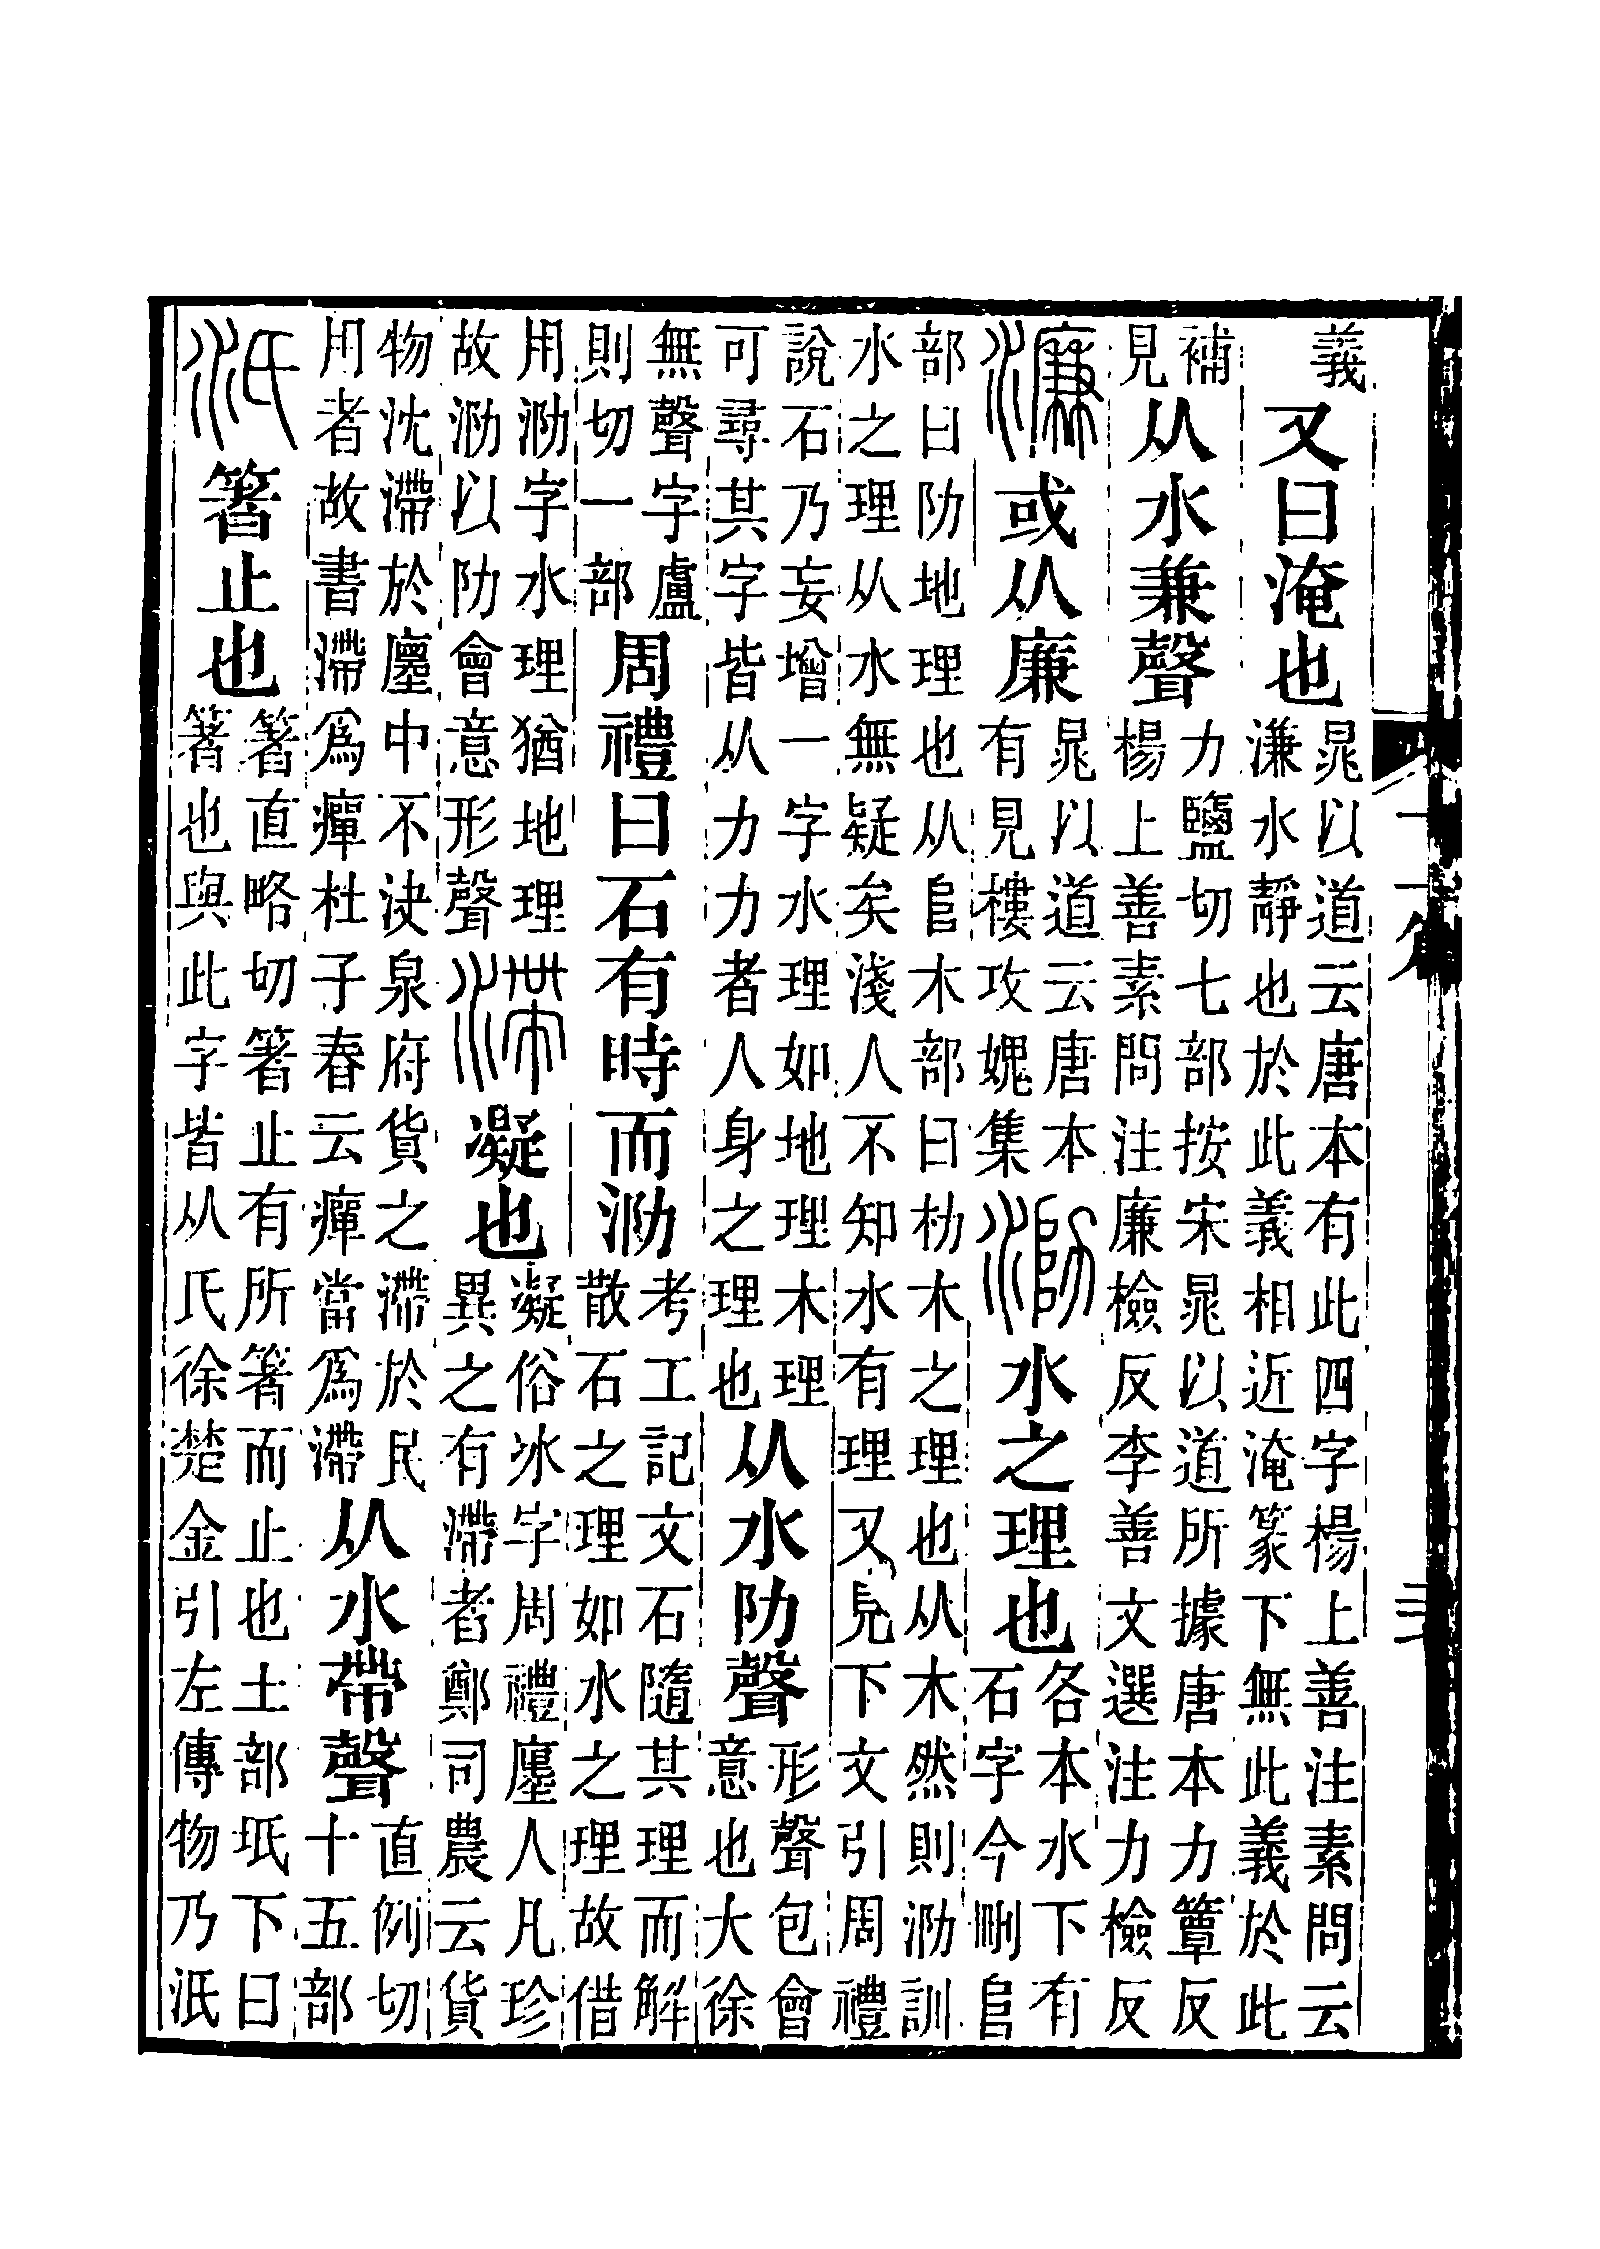 義又曰淹也晁以道云唐本有此四字楊上善注素問云溓水靜也於此義相近淹篆下無此義於此
補見从水兼聲力鹽切七部按宋晁以道所據唐本力簟反楊上善素問注廉檢反李善文選注力檢反
濂或从廉晁以道云唐本有見樓攻媿集泐水之理也各本水下有石字今刪𨸏
部曰阞地理也从𨸏木部曰朸木之理也从木然則泐訓水之理从水無疑矣淺人不知水有理又見下文引周禮
說石乃妄增一字水理如地理木理可尋其字皆从力力者人身之理也从水阞聲形聲包會意也大徐
無聲字盧則切一部周禮曰石有時而泐考工記文石隨其理而解散石之理如水之理故借
用泐字水理猶地理故泐以阞會意形聲滯凝也凝俗冰字周禮廛人凡珍異之有滯者鄭司農云貨
物沈滯於廛中不決泉府貨之滯於民用者故書滯爲癉杜子春云癉當爲滯从水帶聲直例切十五部
汦箸止也箸直略切箸止有所箸而止也土部坻下曰箸也與此字皆从氏徐楚金引左傳物乃汦